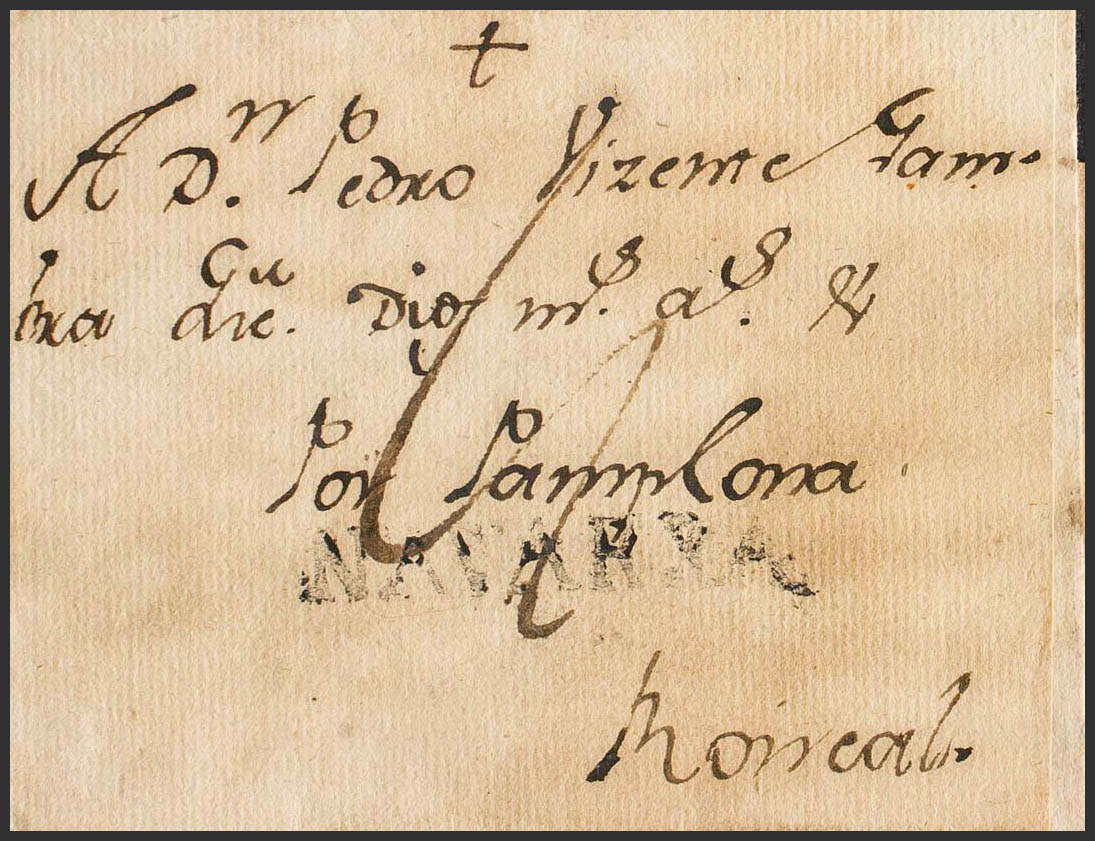 +
A Dn. Pedro Vizente Gam-
bra Dios ms. as. &
Por Pamplona
NAVARRA
Roncal.